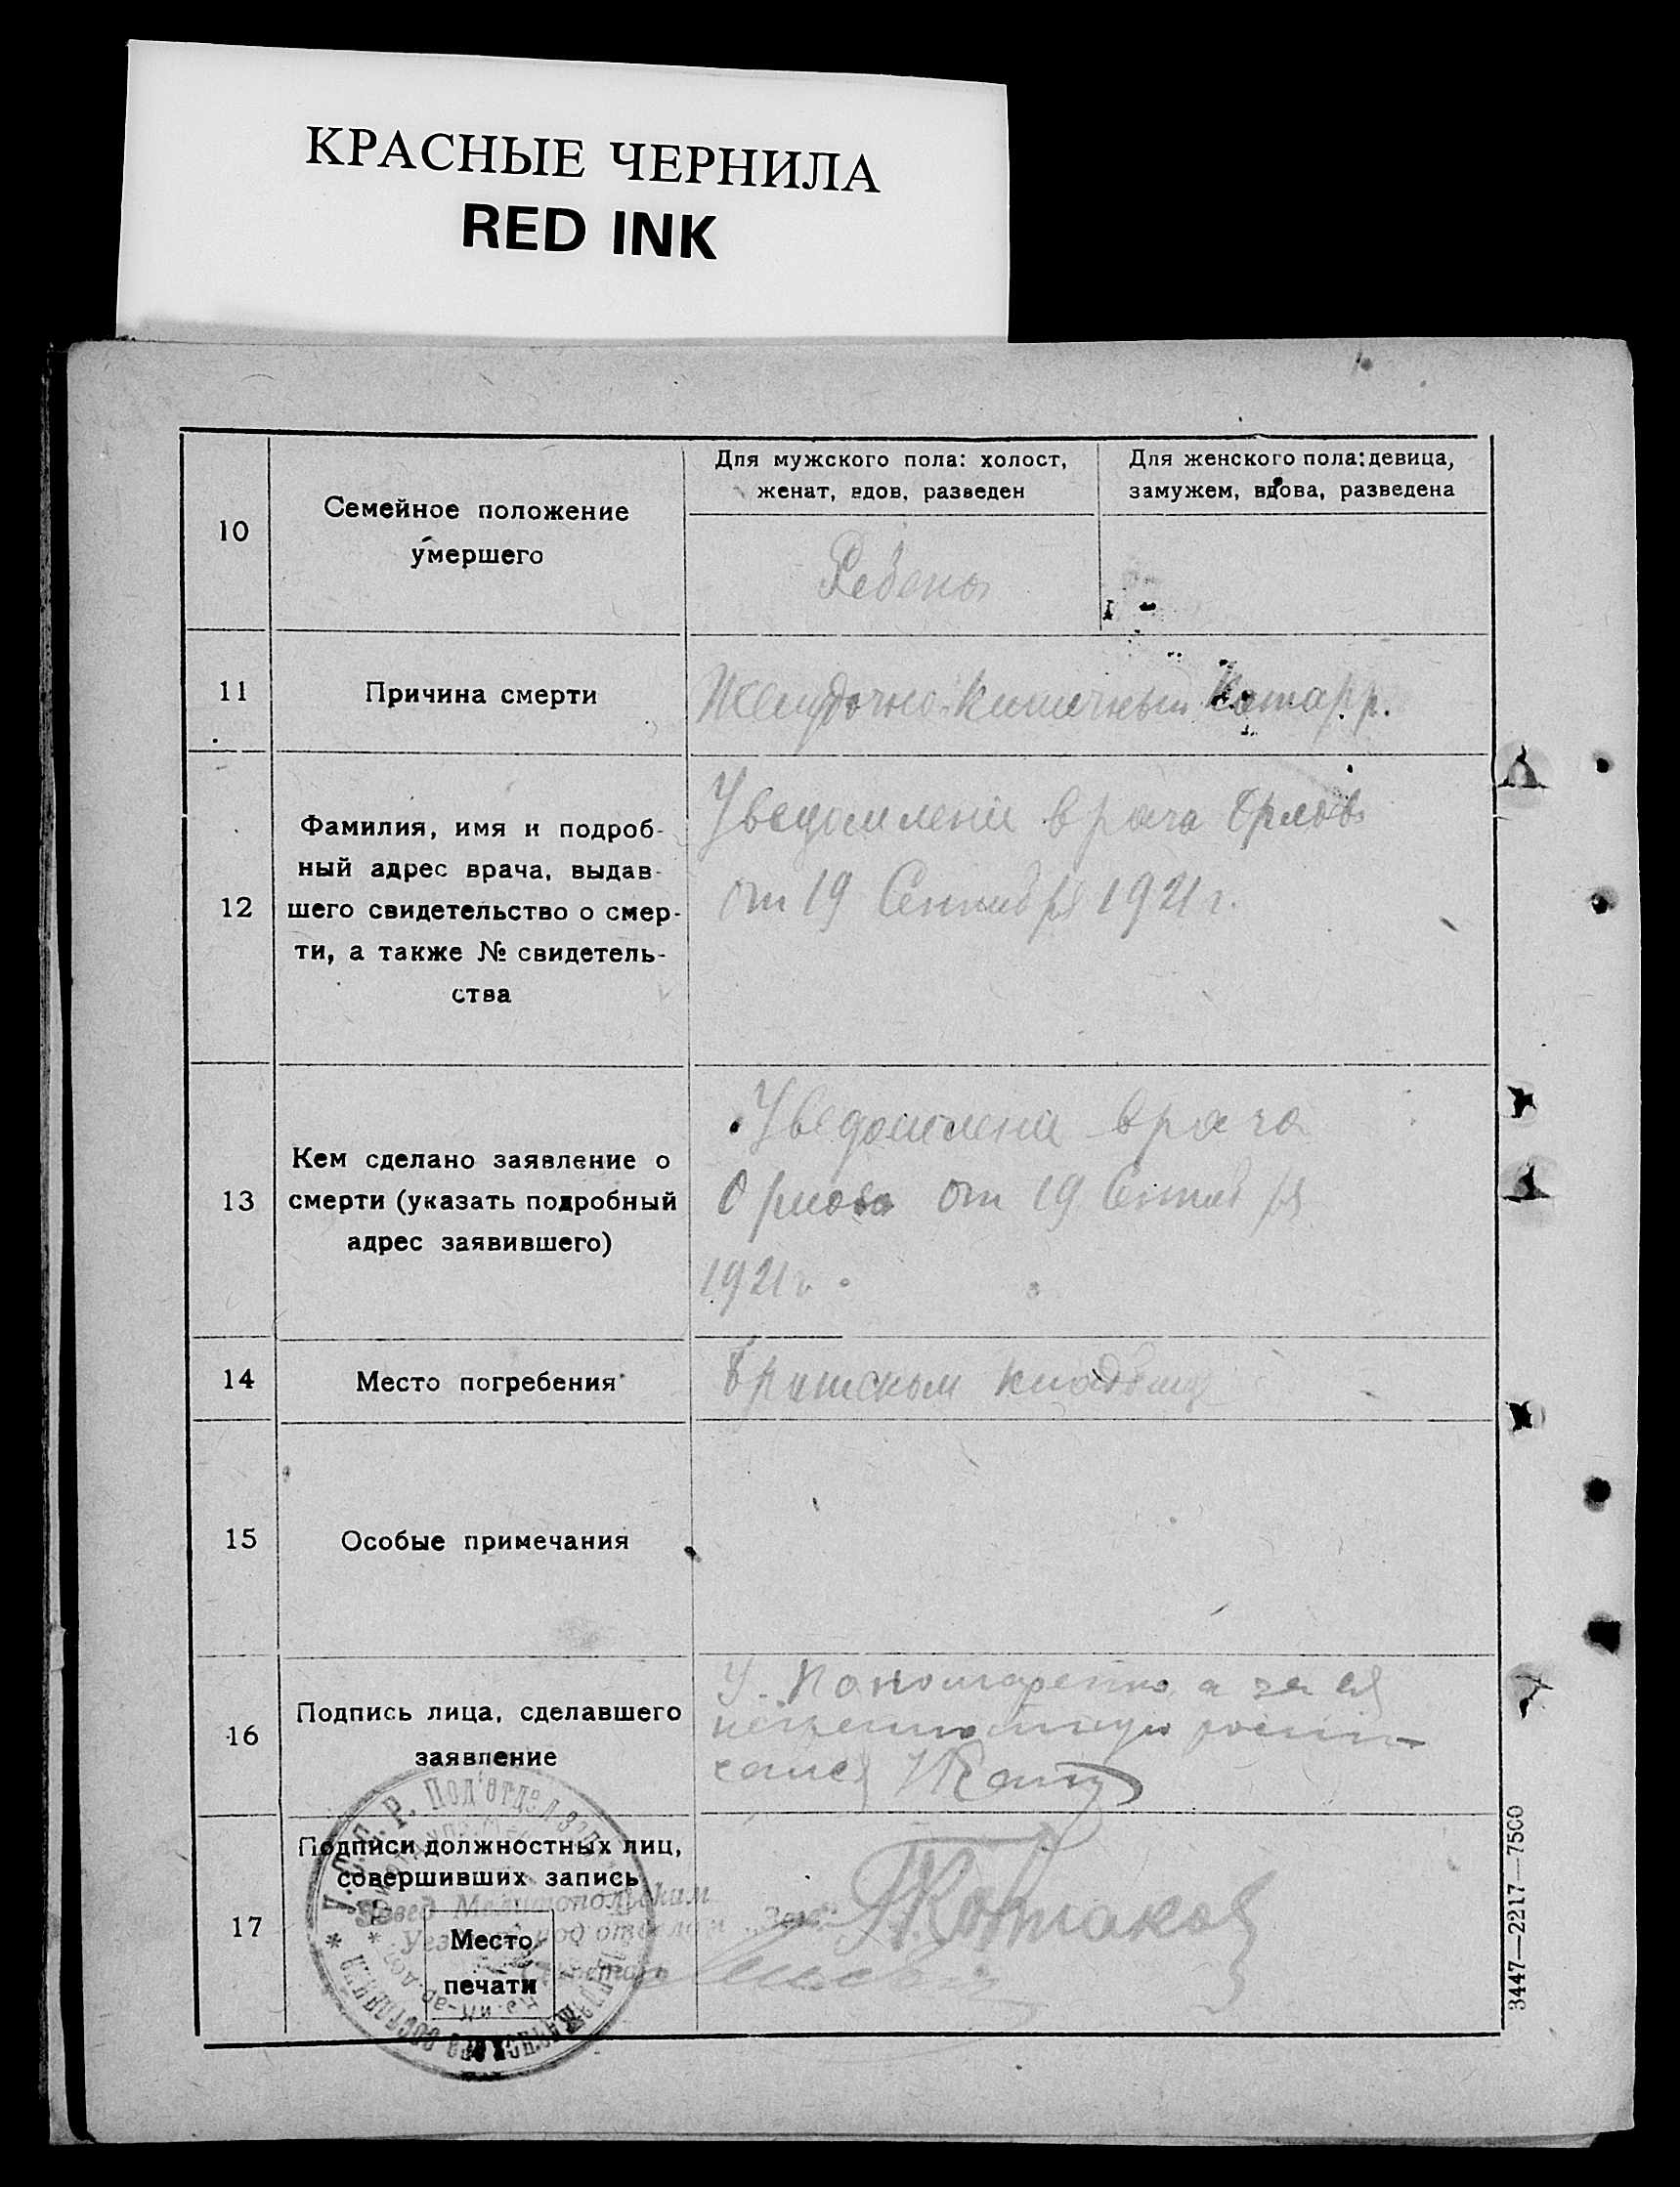 КРАСНЫЕ ЧЕРНИЛА
RED INK
10
Семейное положение
умершего
Для мужского пола: холост,
женат, вдов, разведен
Для женского пола: девица,
замужем, вдова, разведена
Ребенок
11
Причина смерти
Желудочно-кишечный Катарр.
12
Фамилия, имя и подроб-
ный адрес врача, выдав-
шего свидетельство о смер-
ти, а также № свидетель-
ства
Уведомлени врача Орлова
от 19 Сентября 1921 г.
13
Кем сделано заявление о
смерти (указать подробный
адрес заявившего)
Уведомлени врача
Орлова от 19 Сентября
1921 г.
14
Место погребения
кладбище
15
Особые примечания
16
Подпись лица, сделавшего
заявление
Пономаренко а за ея
неграмотную роспи-
17
Подписи должностных лиц,
совершивших запись
Место
печати
Завед Мелитопольским
У. С. С. Р. Под'отдел зап.
3447—2217—7500